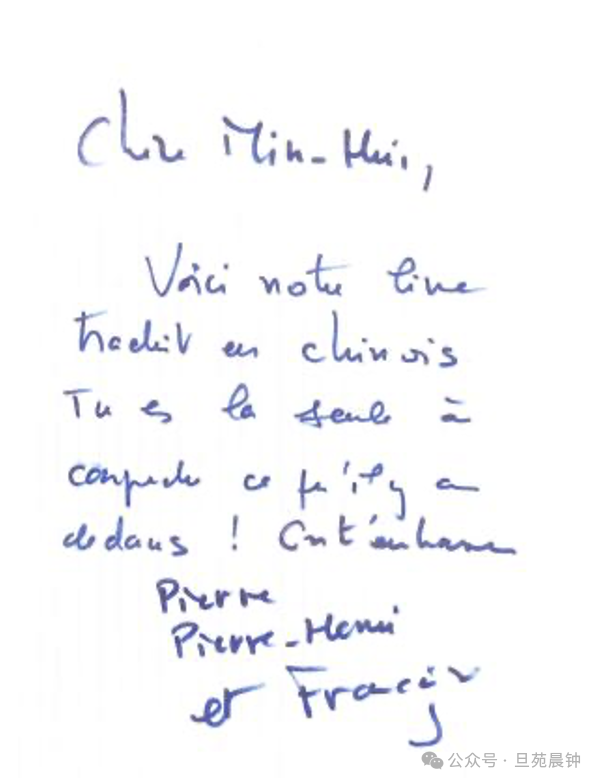 Chère Min-Hui,
Voici notre livre
traduit en chinois
Tu es la seule à
comprendre ce qu'il y a
dedans ! On t'embrasse
Pierre
Pierre-Henri
et Francis
公众号·旦苑晨钟